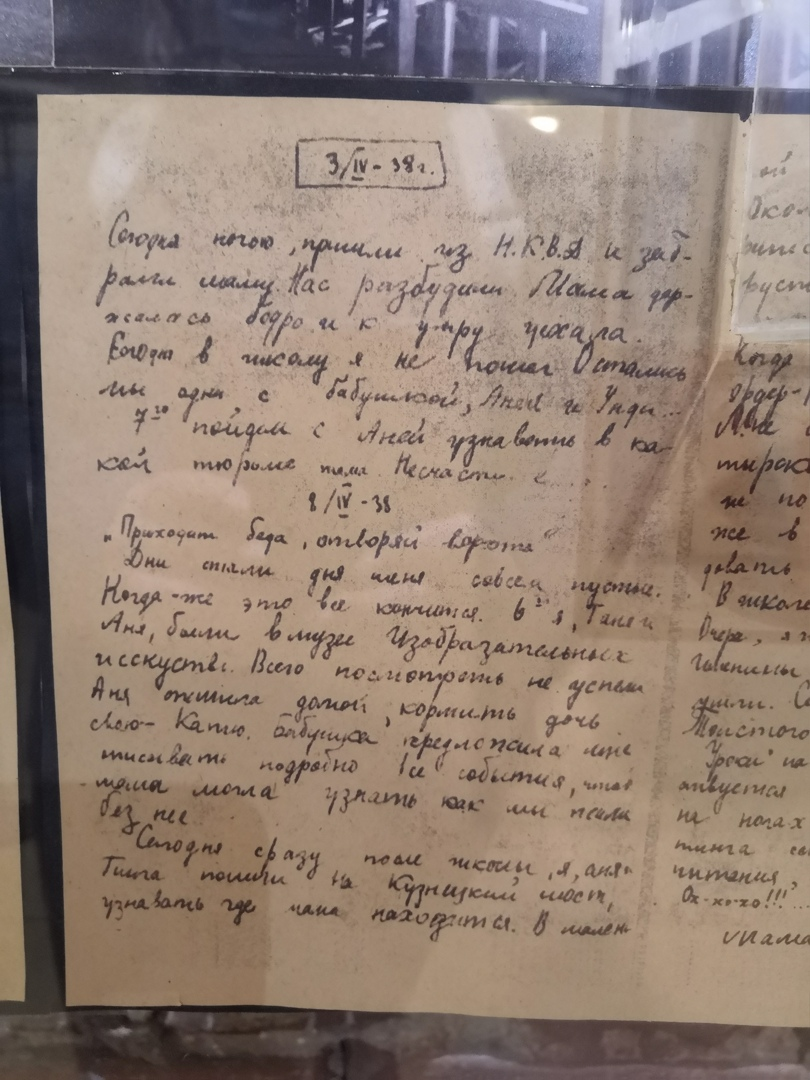 3/IV - 38 г.
Сегодня ночою, пришли из Н.К.В.Д и заб-
рали маму. Нас разбудили Мама дер-
жалась бодро и к утру уехала.
Сегодня в школу я не пошел Остались
мы одни с бабушкой, Аней и Унди...
7 30 пойдем с Аней узнавать в ка-
кой тюрьме мама. Несчастие...
8/IV - 38
„Приходит беда, отворяй ворота"
Дни стали для меня совсем пустые.
Когда-же это все кончится. я, Ганя и
Аня, были в музее Изобразительных
исскуств. Всего посмотреть не успели
Аня спешила домой, кормить дочь
свою - Катю. Бабушка предложила мне
писывать подробно все события, чтоб
мама могла узнать как мы жили
без нее.
Сегодня сразу после школы, я, аня
пошли на Кузнецкий мост,
узнавать где мама находится. В мален-
ой
Око
вуст
Когда
ордер-
Мне
не по
же в
довать
В школе
Вчера, я
ушли.
Толстого
Уроки на
на ногах
читения,
Ох-хо-хо!!!
Мама